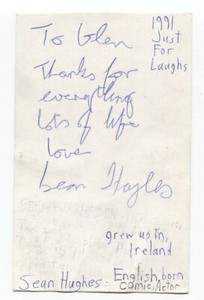 To Glen
Thanks for
everything
lots of life
love
Sean Hughes
1991
Just
For
Laughs
grew up in,
Ireland
Sean Hughes - English, born
comic, Actor